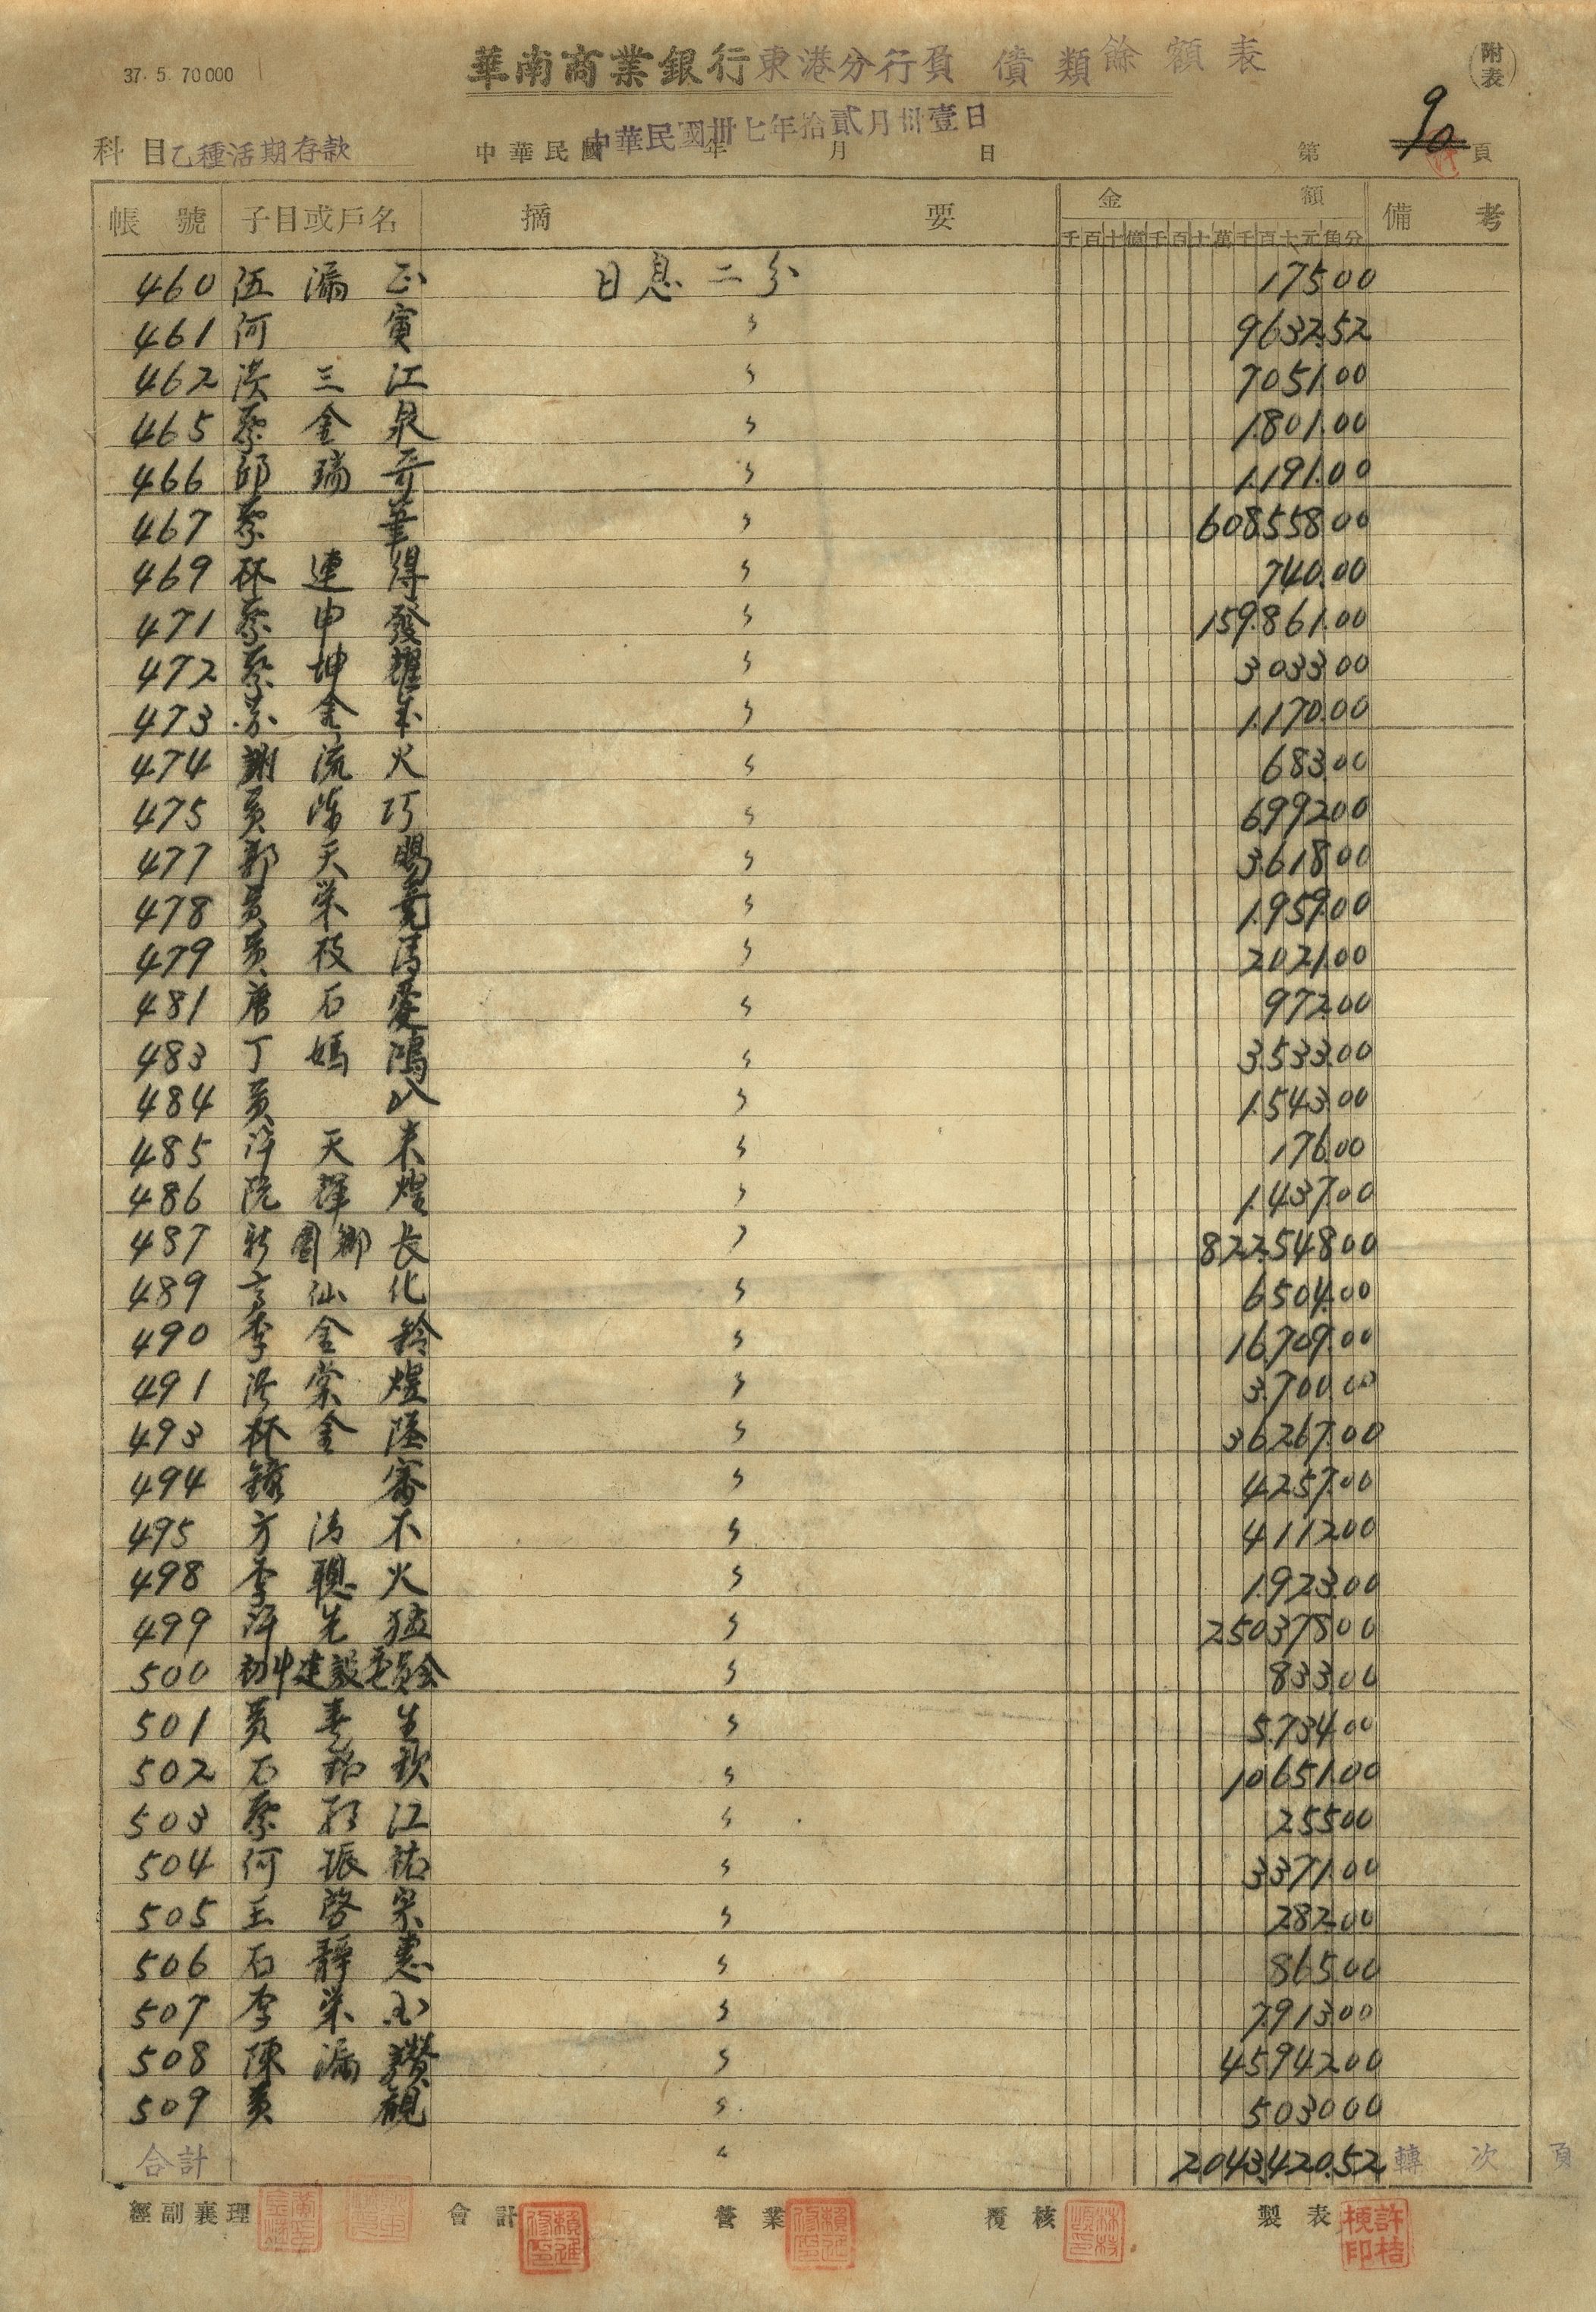 37. 5. 70000
華南商業銀行東港分行負債類餘額表
(附表)
科目乙種活期存款
中華民國 年 月 日
中華民國卅七年拾貳月卅壹日
第 9 頁
帳號 子目或戶名 摘要 金額 備考
千百十億千百十萬千百十元角分
460 伍漏正 日息二分 175.00
461 河寅 〃 9632.52
462 洪三江 〃 7051.00
465 蔡金泉 〃 1.801.00
466 邱瑞奇 〃 1.191.00
467 蔡筆 〃 608558.00
469 林連得 〃 740.00
471 蔡申發 〃 159.861.00
472 蔡坤耀 〃 3033.00
473 蔡金 〃 1.170.00
474 謝流火 〃 683.00
475 黃陈巧 〃 6.992.00
477 郭天賜 〃 3.618.00
478 黃荣 〃 1.959.00
479 黃枝清 〃 2021.00
481 唐石愛 〃 972.00
483 丁媽鴻 〃 3.533.00
484 黃 〃 1.543.00
485 許天来 〃 176.00
486 阮輝煌 〃 1.437.00
487 新園鄉長 〃 822.548.00
489 仙化 〃 6504.00
490 李金鈴 〃 16.709.00
491 洪棠煌 〃 3.700.00
493 林金隆 〃 36267.00
494 審 〃 4.257.00
495 方清不 〃 4112.00
498 李聰火 〃 1.923.00
499 許先猛 〃 250378.00
500 初中建設委員会 〃 833.00
501 黃春生 〃 5.734.00
502 石欽 〃 10651.00
503 蔡江 〃 255.00
504 何振祐 〃 3371.00
505 王啓宗 〃 282.00
506 石靜惠 〃 865.00
507 李栄 〃 7.913.00
508 陳漏讚 〃 45942.00
509 黃硯 〃 5030.00
合計 〃 2043.420.52 轉次頁
經副襄理 會計 營業 覆核 製表
許桔梗印